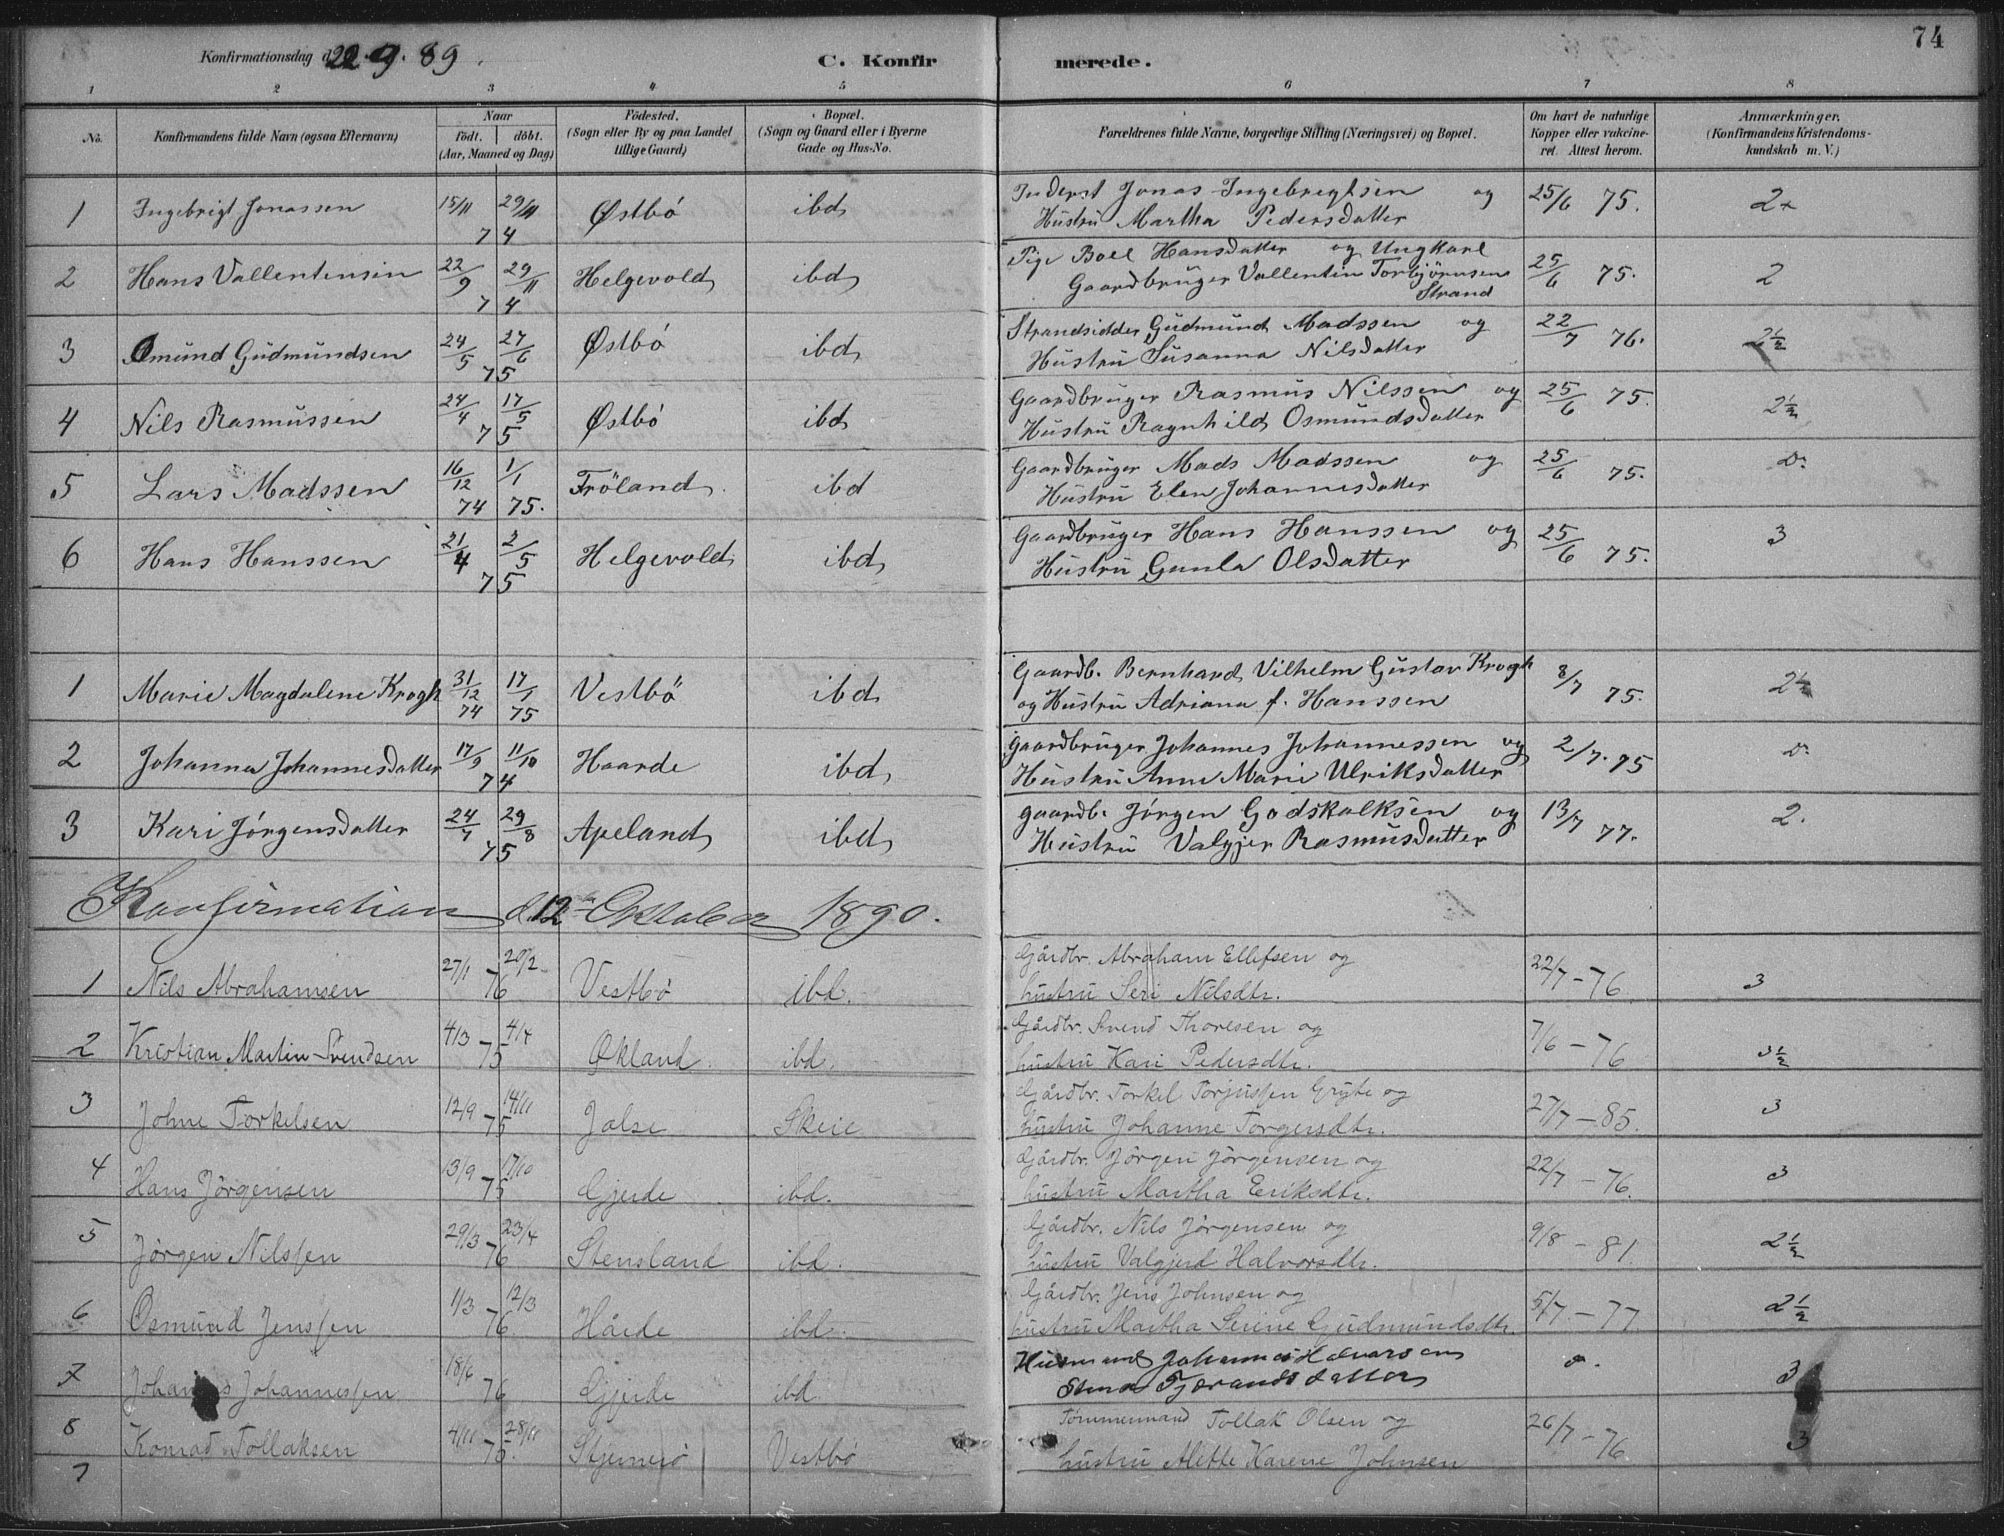 74
Konfirmationsdag d. 22.9.89.
C. Konfirmerede.
1 2 3 4 5 6 7 8
No. Konfirmandens fulde Navn (ogsaa Efternavn) Naar födt. döbt. (Aar, Maaned og Dag) Födested. (Sogn eller By og paa Landet tillige Gaard) Bopæl. (Sogn og Gaard eller i Byerne Gade og Hus-No. Forældrenes fulde Navne, borgerlige Stilling (Næringsvei) og Bopæl. Om havt de naturlige Kopper eller vakcineret. Attest herom. Anmærkninger. (Konfirmandens Kristendomskundskab m. V.)
1 Ingebrigt Jonassen 15/11 29/11 74 Østbö ibd. Inderst Jonas Ingebregtsen og 25/6 75. 2
Hustru Martha Pedersdatter
2 Hans Vallentinsen 22/9 29/11 74 Helgevold ibd. Pige Boel Hansdatter og Ungkarl 25/6 75. 2
Gaardbruger Vallentin Torbjörnsen
Strand
3 Osmund Gudmundsen 24/5 27/6 75 Østbö ibd. Strandsidder Gudmund Madssen og 22/7 76. 2½
Hustru Susanna Nilsdatter
4 Nils Rasmussen 24/4 17/5 75 Østbö ibd. Gaardbruger Rasmus Nilssen og 25/6 75. 2½
Hustru Ragnhild Osmundsdatter
5 Lars Madssen 16/12 74 1/1 75. Fröland. ibd Gaardbruger Mads Madssen og 25/6 75. D.
Hustru Elen Johannesdatter
6 Hans Hanssen 21/4 2/5 75 Helgevold ibd. Gaardbruger Hans Hanssen og 25/6 75. 3
Hustru Gunla Olsdatter
1 Marie Magdalene Krogh 31/12 74 17/1 75 Vestbö ibd. Gaardb. Bernhard Vilhelm Gustav Krogh 8/7 75. 2½
og Hustru Adriana f. Hanssen
2 Johanna Johannesdatter 17/9 11/10 74 Haarde ibd. Gaardbruger Johannes Johannessen og 2/7.75 D.
Hustru Anne Marie Ulriksdatter
3 Kari Jörgensdatter 24/7 29/8 75 Apeland ibd. gaardb. Jörgen Godskalksen og 13/7 77. 2.
Hustru Valgjer Rasmusdatter
Konfirmation d. 12te Oktober 1890.
1 Nils Abrahamsen 27/1 20/2 76 Vestbö ibd. Gårdbr. Abraham Ellefsen og 22/7 - 76 3
hustru Seri Nilsdtr.
2 Kristian Martin Svendsen 4/3 4/4 75 Økland. ibd. Gårdbr. Svend Thoresen og 7/6 - 76 3½
hustru Kari Pedersdtr.
3 Johne Torkelsen 12/9 14/11 75 Jalse Skeie Gårdbr. Torkel Torjussen Gryte og 27/7 - 85. 3
hustru Johanne Torgersdtr.
4 Hans Jörgensen 13/9 17/10 75 Gjerde ibd. Gårdbr. Jörgen Jörgensen og 22/7 - 76. 3
hustru Martha Eriksdtr.
5 Jörgen Nilssen 29/3 23/4 76 Stensland ibd. Gårdbr. Nils Jörgensen og 9/8 - 81. 2½
hustru Valgjerd Halvorsdtr.
6 Osmund Jenssen 1/3 12/3 76 Hårde ibd. Gårdbr. Jens Johnsen og 5/7 - 77 2½
hustru Martha Serine Gudmundsdtr.
7 Johannes Johannessen 18/6 76 Gjerde ibd. Husmand Johannes 3
Stina Tjerandsdatter
8 Konrad Tollaksen 4/11 28/11 75. Stjernerö Vestbö Tömmermand Tollak Olsen og 26/7 - 76. 3
hustru Alette Karene Johnsen
7